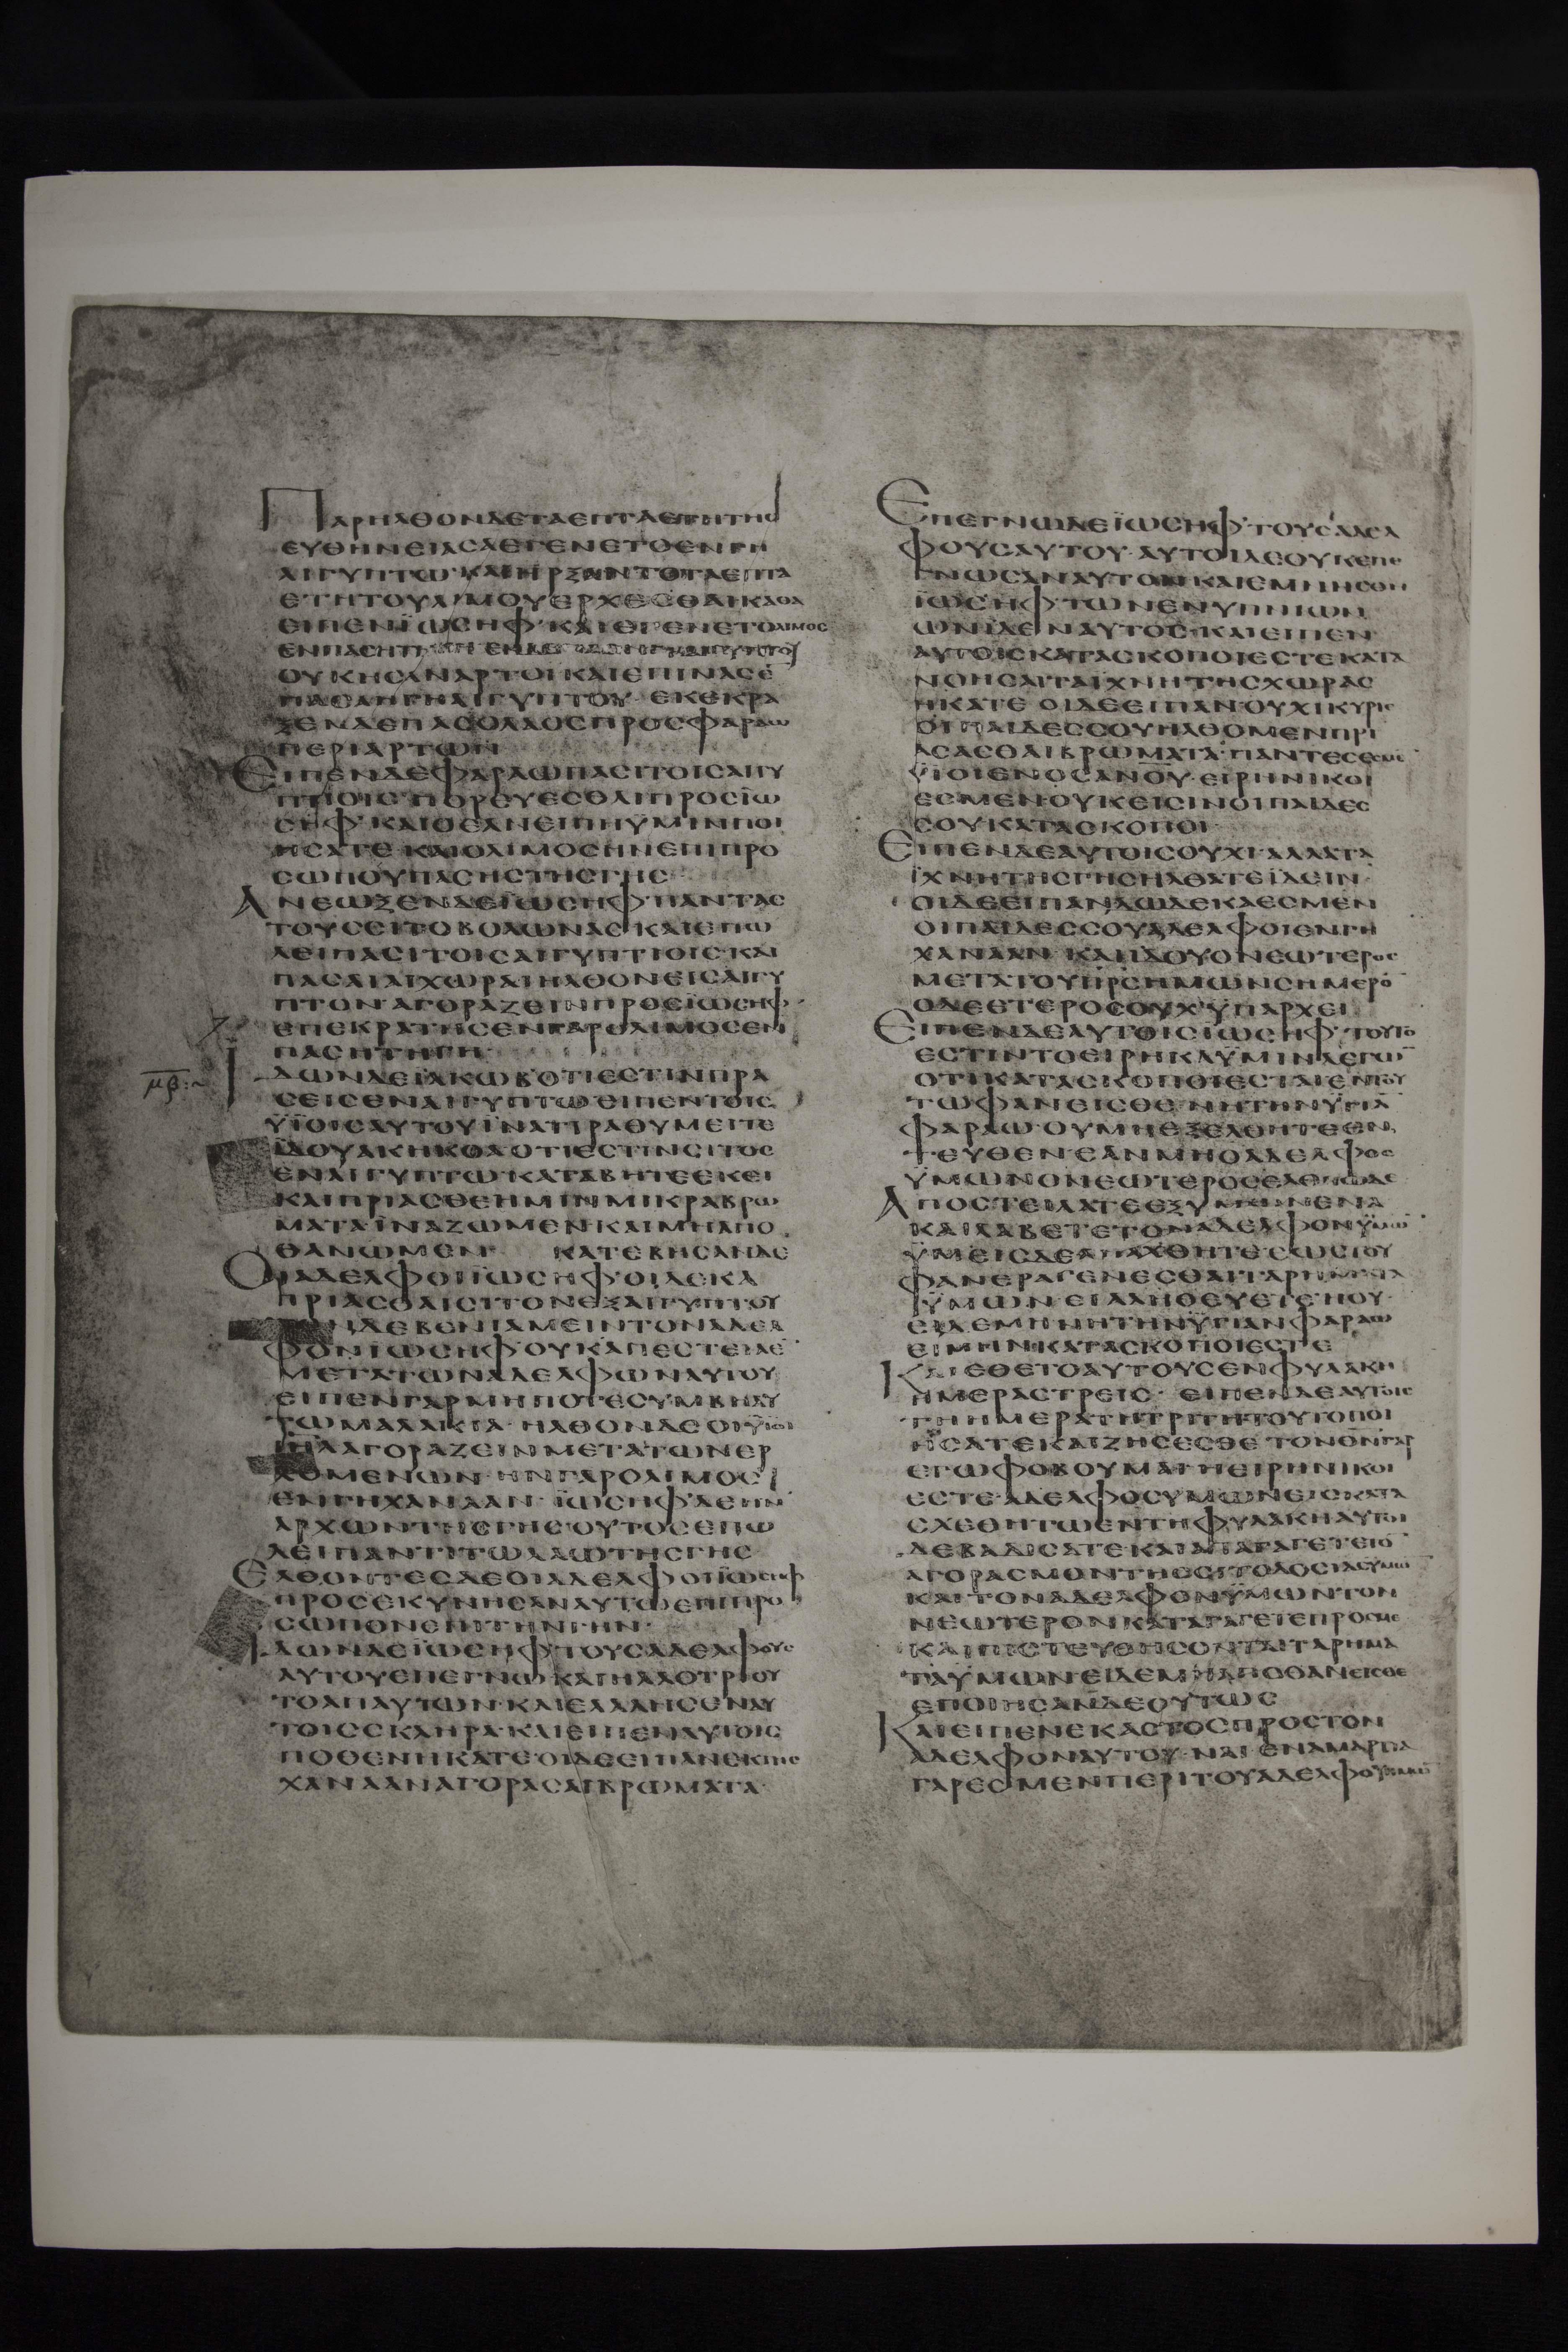 ΠΑΡΗΛΘΟΝΔΕΤΑΕΠΤΑΕΤΗΤΗΣ
ΕΥΘΗΝΕΙΑΣΑΕΓΕΝΕΤΟΕΝΓΗ
ΑΙΓΥΠΤΩ·ΚΑΙΗΡΞΑΝΤΟΤΑΕΠΤΑ
ΕΤΗΤΟΥΛΙΜΟΥΕΡΧΕΣΘΑΙΚΑΘΑ
ΕΙΠΕΝΪΩΣΗΦ·ΚΑΙΕΓΕΝΕΤΟΛΙΜΟΣ
ΕΝΠΑΣΗΤΗ
ΟΥΚΗΣΑΝΑΡΤΟΙΚΑΙΕΠΙΝΑΣΕ
ΠΑΣΑΗΓΗΑΙΓΥΠΤΟΥ·ΕΚΕΚΡΑ
ΞΕΝΔΕΠΑΣΟΛΑΟΣΠΡΟΣΦΑΡΑΩ
ΠΕΡΙΑΡΤΩΝ
ΕΙΠΕΝΔΕΦΑΡΑΩΠΑΣΙΤΟΙΣΑΙΓΥ
ΠΤΙΟΙΣ·ΠΟΡΕΥΕΣΘΑΙΠΡΟΣΪΩ
ΣΗΦ·ΚΑΙΟΕΑΝΕΙΠΗΫΜΙΝΠΟΙ
ΗΣΑΤΕ·ΚΑΙΟΛΙΜΟΣΗΝΕΠΙΠΡΟ
ΣΩΠΟΥΠΑΣΗΣΤΗΣΓΗΣ
ΑΝΕΩΞΕΝΔΕΪΩΣΗΦ·ΠΑΝΤΑΣ
ΤΟΥΣΣΙΤΟΒΟΛΩΝΑΣ·ΚΑΙΕΠΩ
ΛΕΙΠΑΣΙΤΟΙΣΑΙΓΥΠΤΙΟΙΣΚΑΙ
ΠΑΣΑΙΑΙΧΩΡΑΙΗΛΘΟΝΕΙΣΑΙΓΥ
ΠΤΟΝΑΓΟΡΑΖΕΙΝΠΡΟΣΪΩΣΗΦ·
ΕΠΕΚΡΑΤΗΣΕΝΓΑΡΟΛΙΜΟΣΕΝ
ΠΑΣΗΤΗΓΗ·
μβ
ΙΔΩΝΔΕΪΑΚΩΒΟΤΙΕΣΤΙΝΠΡΑ
ΣΕΙΣΕΝΑΙΓΥΠΤΩΕΙΠΕΝΤΟΙΣ
ΫΪΟΙΣΑΥΤΟΥΪΝΑΤΙΡΑΘΥΜΕΙΤΕ
ΙΔΟΥΑΚΗΚΟΑΟΤΙΕΣΤΙΝΣΙΤΟΣ
ΕΝΑΙΓΥΠΤΩΚΑΤΑΒΗΤΕΕΚΕΙ
ΚΑΙΠΡΙΑΣΘΕΗΜΙΝΜΙΚΡΑΒΡΩ
ΜΑΤΑ·ΪΝΑΖΩΜΕΝΚΑΙΜΗΑΠΟ
ΘΑΝΩΜΕΝ· ΚΑΤΕΒΗΣΑΝΔΕ
ΟΙΑΔΕΛΦΟΙΪΩΣΗΦ·ΟΙΔΕΚΑ
ΠΡΙΑΣΘΑΙΣΙΤΟΝΕΞΑΙΓΥΠΤΟΥ
ΤΟΝΔΕΒΕΝΙΑΜΕΙΝΤΟΝΑΔΕΛ
ΦΟΝΪΩΣΗΦΟΥΚΑΠΕΣΤΕΙΛΕ
ΜΕΤΑΤΩΝΑΔΕΛΦΩΝΑΥΤΟΥ
ΕΙΠΕΝΓΑΡΜΗΠΟΤΕΣΥΜΒΗΑΥ
ΤΩΜΑΛΑΚΙΑ·ΗΛΘΟΝΔΕΟΙΫΪΟΙ
ΙΗΛΑΓΟΡΑΖΕΙΝΜΕΤΑΤΩΝΕΡ
ΧΟΜΕΝΩΝ·ΗΝΓΑΡΟΛΙΜΟΣ
ΕΝΓΗΧΑΝΑΑΝ·ΪΩΣΗΦΔΕΗΝ
ΑΡΧΩΝΤΗΣΓΗΣΟΥΤΟΣΕΠΩ
ΛΕΙΠΑΝΤΙΤΩΛΑΩΤΗΣΓΗΣ
ΕΛΘΟΝΤΕΣΔΕΟΙΑΔΕΛΦΟΙΪΩΣΗΦ
ΠΡΟΣΕΚΥΝΗΣΑΝΑΥΤΩΕΠΙΠΡΟ
ΣΩΠΟΝΕΠΙΤΗΝΓΗΝ·
ΙΔΩΝΔΕΪΩΣΗΦ·ΤΟΥΣΑΔΕΛΦΟΥΣ
ΑΥΤΟΥΕΠΕΓΝΩ·ΚΑΙΗΛΛΟΤΡΙΟΥ
ΤΟΑΠΑΥΤΩΝ·ΚΑΙΕΛΑΛΗΣΕΝΑΥ
ΤΟΙΣΣΚΛΗΡΑ·ΚΑΙΕΙΠΕΝΑΥΤΟΙΣ
ΠΟΘΕΝΗΚΑΤΕ·ΟΙΔΕΕΙΠΑΝΕΚΓΗΣ
ΧΑΝΑΑΝΑΓΟΡΑΣΑΙΒΡΩΜΑΤΑ·
ΕΠΕΓΝΩΔΕΪΩΣΗΦ·ΤΟΥΣΑΔΕΛ
ΦΟΥΣΑΥΤΟΥ·ΑΥΤΟΙΔΕΟΥΚΕΠΕ
ΓΝΩΣΑΝΑΥΤΟΝ·ΚΑΙΕΜΝΗΣΘΗ
ΪΩΣΗΦ·ΤΩΝΕΝΥΠΝΙΩΝ
ΩΝΙΔΕΝΑΥΤΟΣ·ΚΑΙΕΙΠΕΝ
ΑΥΤΟΙΣΚΑΤΑΣΚΟΠΟΙΕΣΤΕΚΑΤΑ
ΝΟΗΣΑΙΤΑΙΧΝΗΤΗΣΧΩΡΑΣ
ΗΚΑΤΕ ΟΙΔΕΕΙΠΑΝΟΥΧΙΚΥΡΙΕ
ΟΙΠΑΙΔΕΣΣΟΥΗΛΘΟΜΕΝΠΡΙ
ΑΣΑΣΘΑΙΒΡΩΜΑΤΑ·ΠΑΝΤΕΣΕΣΜΕ
ΫΪΟΙΕΝΟΣΑΝΟΥ·ΕΙΡΗΝΙΚΟΙ
ΕΣΜΕΝ·ΟΥΚΕΙΣΙΝΟΙΠΑΙΔΕΣ
ΣΟΥΚΑΤΑΣΚΟΠΟΙ·
ΕΙΠΕΝΔΕΑΥΤΟΙΣΟΥΧΙ·ΑΛΛΑΤΑ
ΪΧΝΗΤΗΣΓΗΣΗΛΘΑΤΕΪΔΕΙΝ·
ΟΙΔΕΕΙΠΑΝΔΩΔΕΚΑΕΣΜΕΝ
ΟΙΠΑΙΔΕΣΣΟΥΑΔΕΛΦΟΙΕΝΓΗ
ΧΑΝΑΑΝ·ΚΑΙΪΔΟΥΟΝΕΩΤΕΡΟΣ
ΜΕΤΑΤΟΥΠΡΣΗΜΩΝΣΗΜΕΡΟ
ΟΔΕΕΤΕΡΟΣΟΥΧΫΠΑΡΧΕΙ
ΕΙΠΕΝΔΕΑΥΤΟΙΣΪΩΣΗΦ·ΤΟΥΤΟ
ΕΣΤΙΝΤΟΕΙΡΗΚΑΫΜΙΝΛΕΓΩ
ΟΤΙΚΑΤΑΣΚΟΠΟΙΕΣΤΑΙΕΝΤΟΥ
ΤΩΦΑΝΕΙΣΘΕ·ΝΗΤΗΝΫΓΙΑ
ΦΑΡΑΩ·ΟΥΜΗΕΞΕΛΘΗΤΕΕΝ
ΤΕΥΘΕΝ·ΕΑΝΜΗΟΑΔΕΛΦΟΣ
ΫΜΩΝΟΝΕΩΤΕΡΟΣΕΛΘΗΩΔΕ
ΑΠΟΣΤΕΙΛΑΤΕΕΞΥΜΩΝΕΝΑ
ΚΑΙΛΑΒΕΤΕΤΟΝΑΔΕΛΦΟΝΫΜΩ
ΫΜΕΙΣΔΕΑΠΑΧΘΗΤΕΕΩΣΤΟΥ
ΦΑΝΕΡΑΓΕΝΕΣΘΑΙΤΑΡΗΜΑΤΑ
ΫΜΩΝ·ΕΙΑΛΗΘΕΥΕΤΕΗΟΥ·
ΕΙΔΕΜΗΝΗΤΗΝΫΓΙΑΝΦΑΡΑΩ
ΕΙΜΗΝΚΑΤΑΣΚΟΠΟΙΕΣΤΕ
ΚΑΙΕΘΕΤΟΑΥΤΟΥΣΕΝΦΥΛΑΚΗ
ΗΜΕΡΑΣΤΡΕΙΣ· ΕΙΠΕΝΔΕΑΥΤΟΙΣ
ΤΗΗΜΕΡΑΤΗΤΡΙΤΗΤΟΥΤΟΠΟΙ
ΗΣΑΤΕΚΑΙΖΗΣΕΣΘΕ·ΤΟΝΘΝΓΑΡ
ΕΓΩΦΟΒΟΥΜΑΙ·ΕΙΕΙΡΗΝΙΚΟΙ
ΕΣΤΕ·ΑΔΕΛΦΟΣΥΜΩΝΕΙΣΚΑΤΑ
ΣΧΕΘΗΤΩΕΝΤΗΦΥΛΑΚΗΑΥΤΟΙ
ΔΕΒΑΔΙΣΑΤΕ·ΚΑΙΑΠΑΓΑΓΕΤΕΤΟ
ΑΓΟΡΑΣΜΟΝΤΗΣΣΙΤΟΔΟΣΙΑΣΫΜΩ
ΚΑΙΤΟΝΑΔΕΛΦΟΝΫΜΩΝΤΟΝ
ΝΕΩΤΕΡΟΝΚΑΤΑΓΑΓΕΤΕΠΡΟΣΜΕ
ΚΑΙΠΙΣΤΕΥΘΗΣΟΝΤΑΙΤΑΡΗΜΑ
ΤΑΫΜΩΝ·ΕΙΔΕΜΗΑΠΟΘΑΝΕΙΣΘΕ
ΕΠΟΙΗΣΑΝΔΕΟΥΤΩΣ
ΚΑΙΕΙΠΕΝΕΚΑΣΤΟΣΠΡΟΣΤΟΝ
ΑΔΕΛΦΟΝΑΥΤΟΥ·ΝΑΙΕΝΑΜΑΡΤΙΑ
ΓΑΡΕΣΜΕΝΠΕΡΙΤΟΥΑΔΕΛΦΟΥΗΜΩ